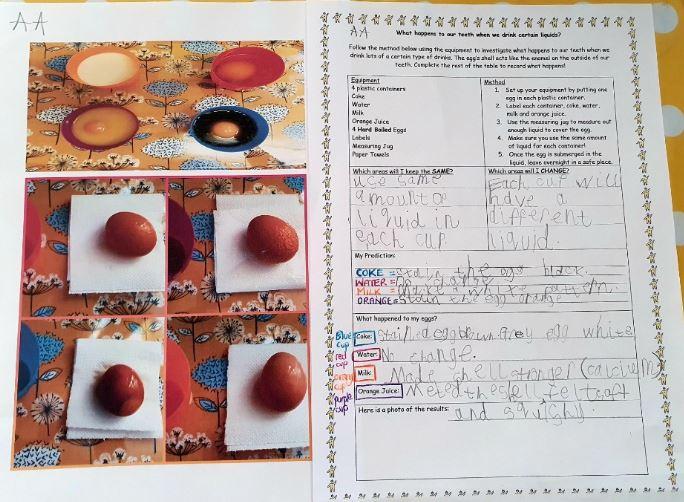 AA
AA
What happens to our teeth when we drink certain liquids?
Follow the method below using the equipment to investigate what happens to our teeth when we
drink lots of a certain type of drinks. The egg's shell acts like the enamel on the outside of our
teeth. Complete the rest of the table to record what happens!
Equipment
4 plastic containers
Coke
Water
Milk
Orange Juice
4 Hard Boiled Eggs
Labels
Measuring Jug
Paper Towels
Method
1. Set up your equipment by putting one
egg in each plastic container.
2. Label each container, coke, water,
milk and orange juice.
3. Use the measuring jug to measure out
enough liquid to cover the egg.
4. Make sure you use the same amount
of liquid for each container!
5. Once the egg is submerged in the
liquid, leave overnight in a safe place.
Which areas will I keep the SAME?
use same
amount of
liquid in
each cup
Which areas will I CHANGE?
Each cup will
have a
different
liquid.
My Prediction:
COKE = Stain the egg black.
WATER = No change
MILK = make white pattern.
ORANGE = Stain the egg orange
What happened to my eggs?
Blue cup Coke: Stained egg brown. grey egg white
red cup Water: No change.
cup Milk: Made shell stronger (calcium)
purple cup Orange Juice: Melted the shell, felt soft
and squighy.
Here is a photo of the results: